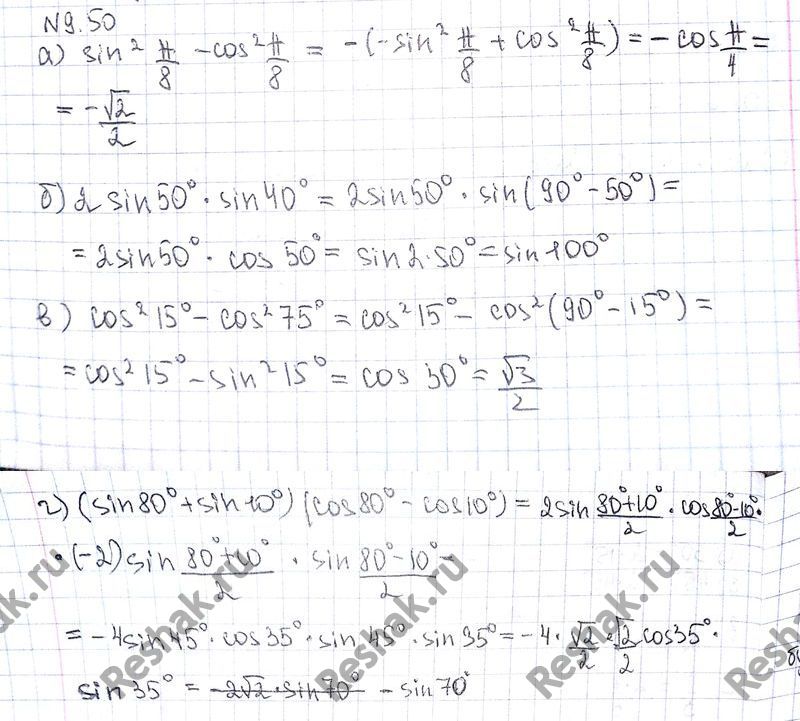 N 9.50
а) sin² π/8 - cos² π/8 = -(-sin² π/8 + cos² π/8) = - cos π/4 =
= - √2/2
б) 2 sin 50° · sin 40° = 2 sin 50° · sin(90° - 50°) =
= 2 sin 50° · cos 50° = sin 2·50° = sin 100°
в) cos² 15° - cos² 75° = cos² 15° - cos² (90° - 15°) =
= cos² 15° - sin² 15° = cos 30° = √3/2
г) (sin 80° + sin 10°) (cos 80° - cos 10°) = 2 sin (80°+10°)/2 · cos (80°-10°)/2 ·
· (-2) sin (80°+10°)/2 · sin (80°-10°)/2 =
= -4 sin 45° · cos 35° · sin 45° · sin 35° = -4 · √2/2 · √2/2 cos 35° ·
sin 35° = -2√2 · sin 70° - sin 70°
Reshak.ru
Reshak.ru
Reshak.ru